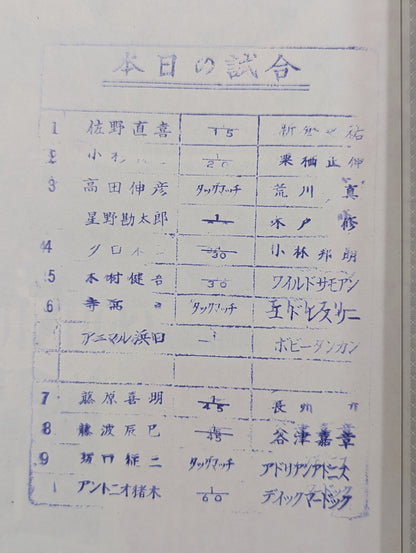 本日の試合
1 佐野直喜 1/15 新 祐
2 小 1/20 栗栖正伸
3 高田伸彦 タッグマッチ 荒川真
星野勘太郎 木戸修
4 1/30 小林邦朗
5 木村健吾 1/30 ワイルドサモアン
6 寺西 タッグマッチ エドレスリー
アニマル浜口 ボビーダンカン
7 藤原喜明 1/45 長州
8 藤波辰巳 1/45 谷津嘉章
9 坂口征二 タッグマッチ アドリアンアドニス
アントニオ猪木 1/60 ディックマードック